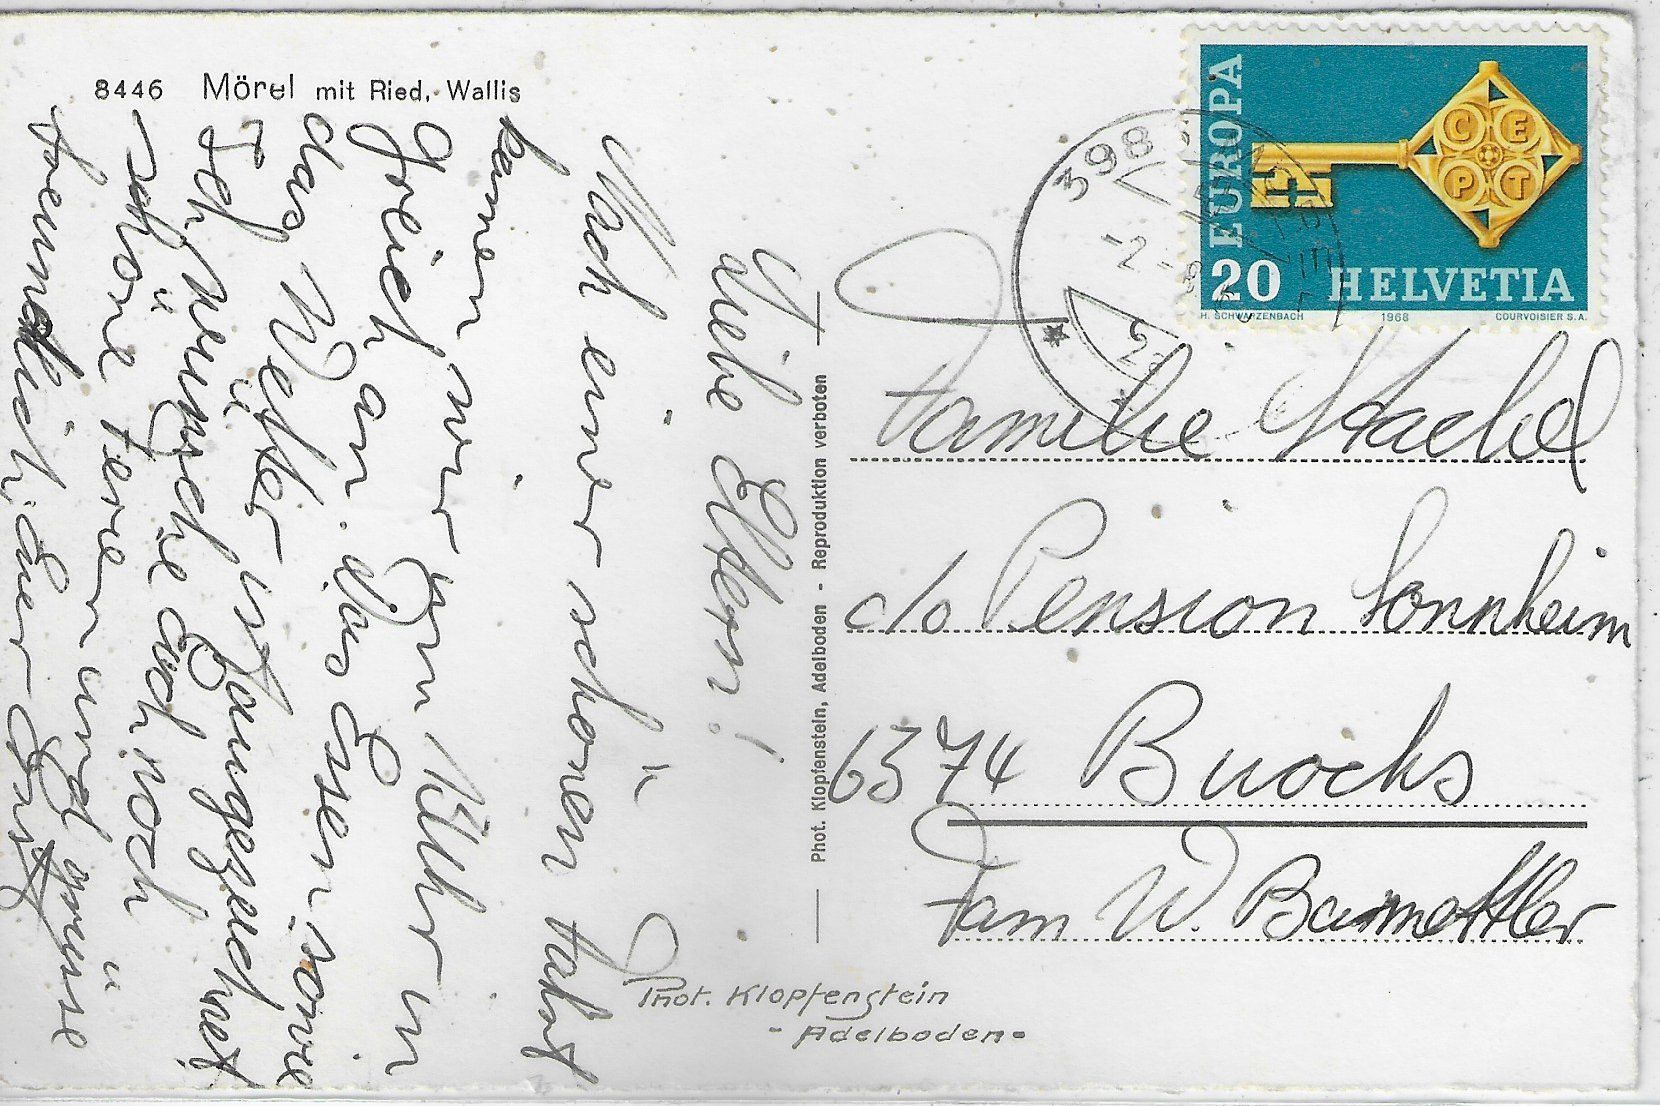 8446 Mörel mit Ried, Wallis
Liebe Eltern!
Nach einer schönen Fahrt
kamen wir um 12 Uhr in
an. Das Essen sowie
das Wetter ist ausgezeichnet
Ich wünsche Euch noch
schöne Ferien und grüsse
freundlich. Euer Ernst
Phot. Klopfenstein, Adelboden - Reproduktion verboten
Phot. Klopfenstein
- Adelboden -
EUROPA
CEPT
20 HELVETIA
H. SCHWARZENBACH 1968 COURVOISIER S.A.
398
Familie Stachel
c/o Pension Sonnheim
6374 Buochs
Fam W. Barmettler